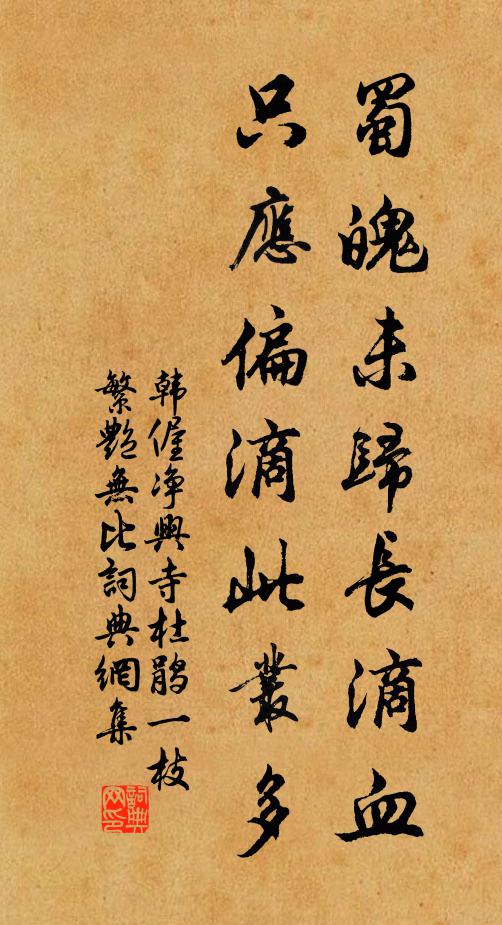 蜀魄未歸長滴血
只應偏滴此叢多
韩偓净興寺杜鹃一枝
繁艷無比詞典網集